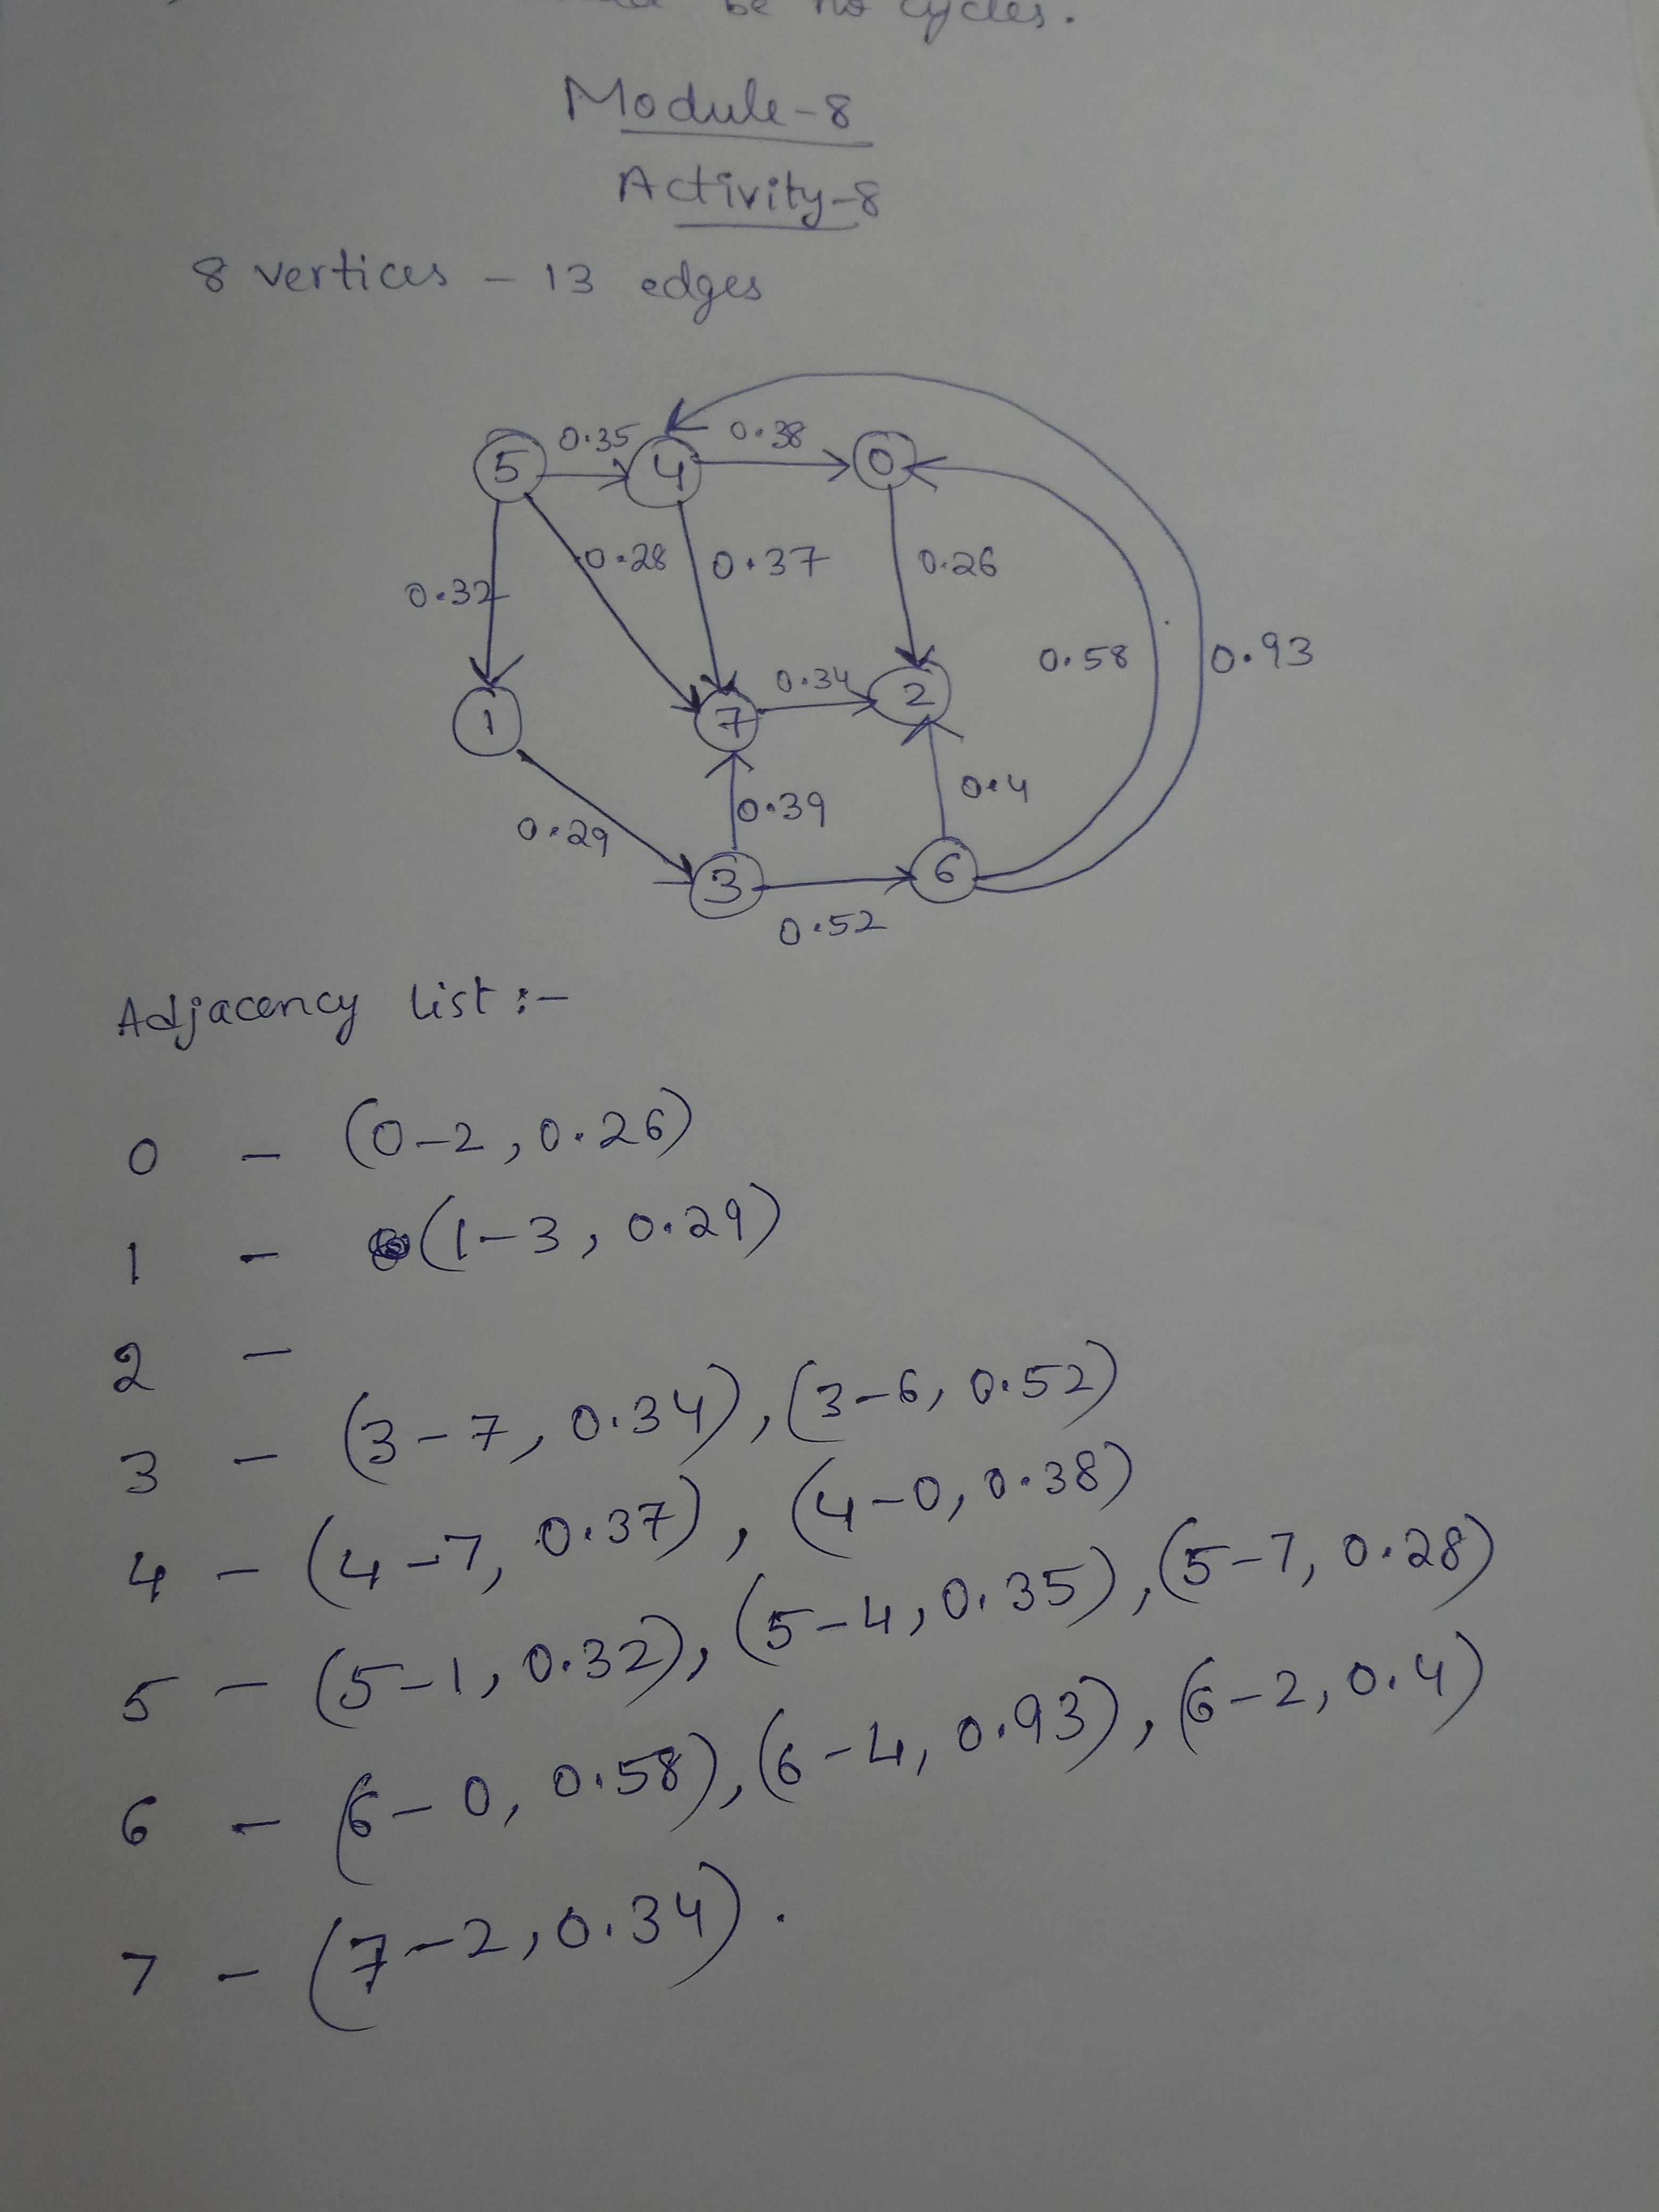 be no cycles.
Module-8
Activity-8
8 vertices - 13 edges
0.35 0.38
5 4 0
0.32 0.28 0.37 0.26
0.58 0.93
1 7 0.34 2
0.29 0.39 0.4
3 6
0.52
Adjacency list :-
0 - (0-2, 0.26)
1 - (1-3, 0.29)
2 -
3 - (3-7, 0.34), (3-6, 0.52)
4 - (4-7, 0.37), (4-0, 0.38)
5 - (5-1, 0.32), (5-4, 0.35), (5-7, 0.28)
6 - (6-0, 0.58), (6-4, 0.93), (6-2, 0.4)
7 - (7-2, 0.34).